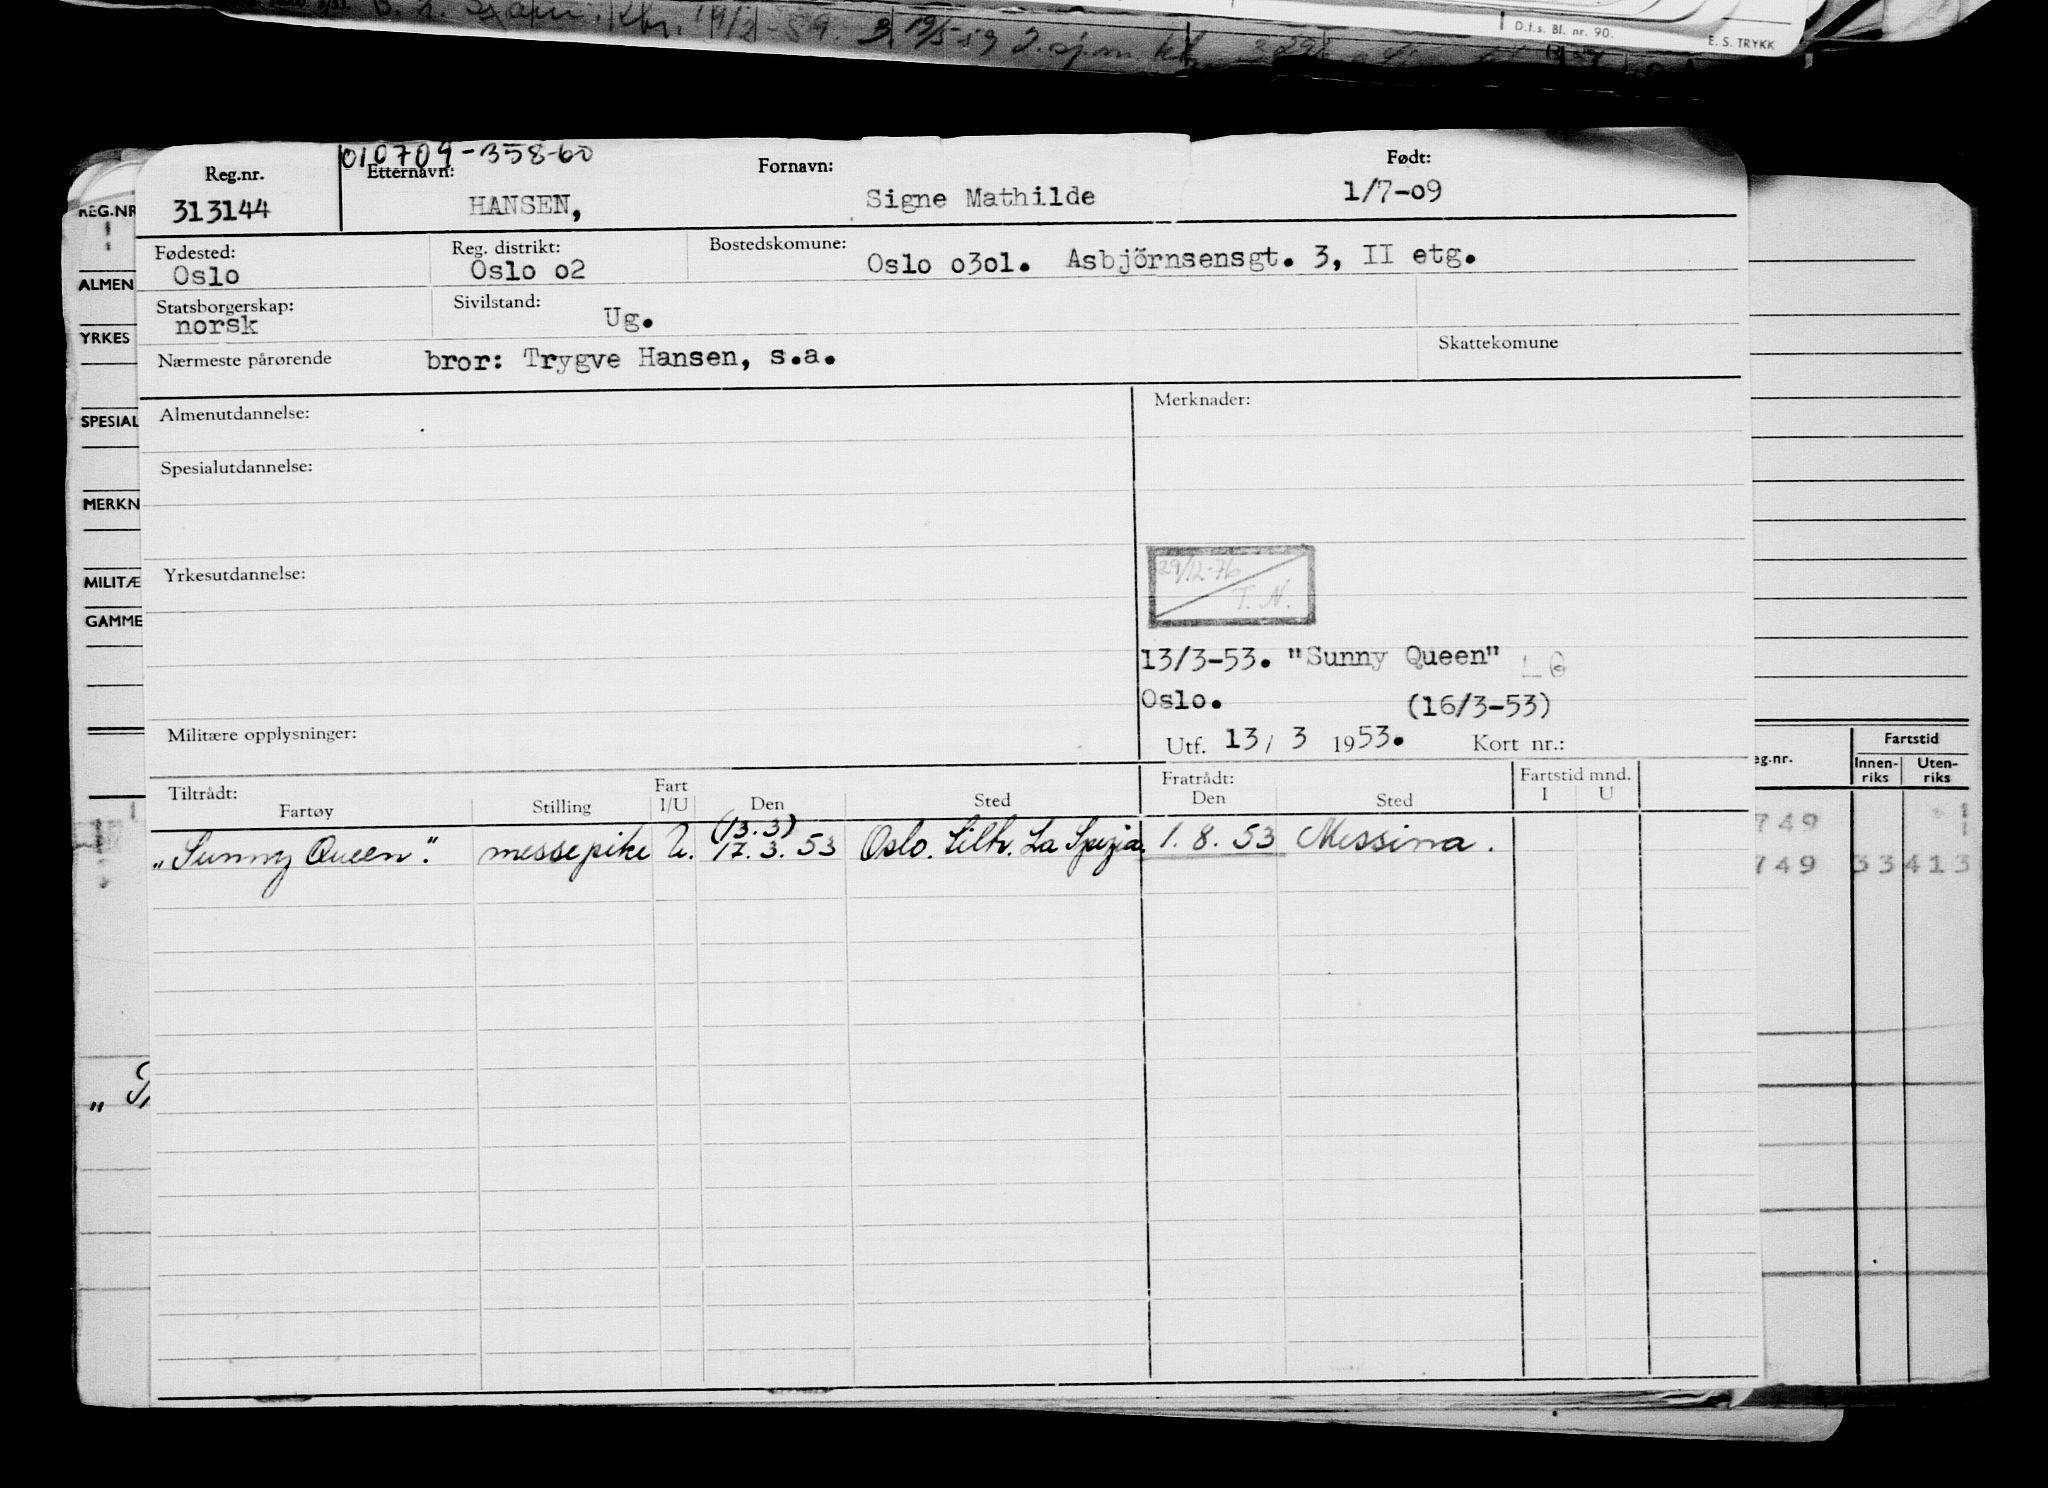 19/5-59
D.f.s. Bl. nr. 90.
E. S. TRYKK
010709-358-60
Reg.nr.
Etternavn:
Fornavn:
Født:
313144
HANSEN,
Signe Mathilde
1/7-09
Fødested:
Reg. distrikt:
Bostedskomune:
Oslo
Oslo o2
Oslo o3o1. Asbjörnsensgt. 3, II etg.
Statsborgerskap:
Sivilstand:
norsk
Ug.
Nærmeste pårørende
bror: Trygve Hansen, s.a.
Skattekomune
Almenutdannelse:
Merknader:
Spesialutdannelse:
Yrkesutdannelse:
29/12-76
T. N.
13/3-53. "Sunny Queen"
Oslo. (16/3-53)
Militære opplysninger:
Utf. 13/ 3 1953. Kort nr.:
Tiltrådt:
Fart
Fratrådt:
Fartstid mnd.
Fartøy
Stilling
I/U
Den
Sted
Den
Sted
I
U
(13.3)
"Sunny Queen". messepike U. 17.3.53 Oslo. Tilh. La Spezia. 1.8.53 Messina.
REG.NR
ALMEN
YRKES
SPESIAL
MERKN
MILITÆ
GAMME
eg.nr.
Fartstid
Innen-
riks
Uten-
riks
749
749 33 413